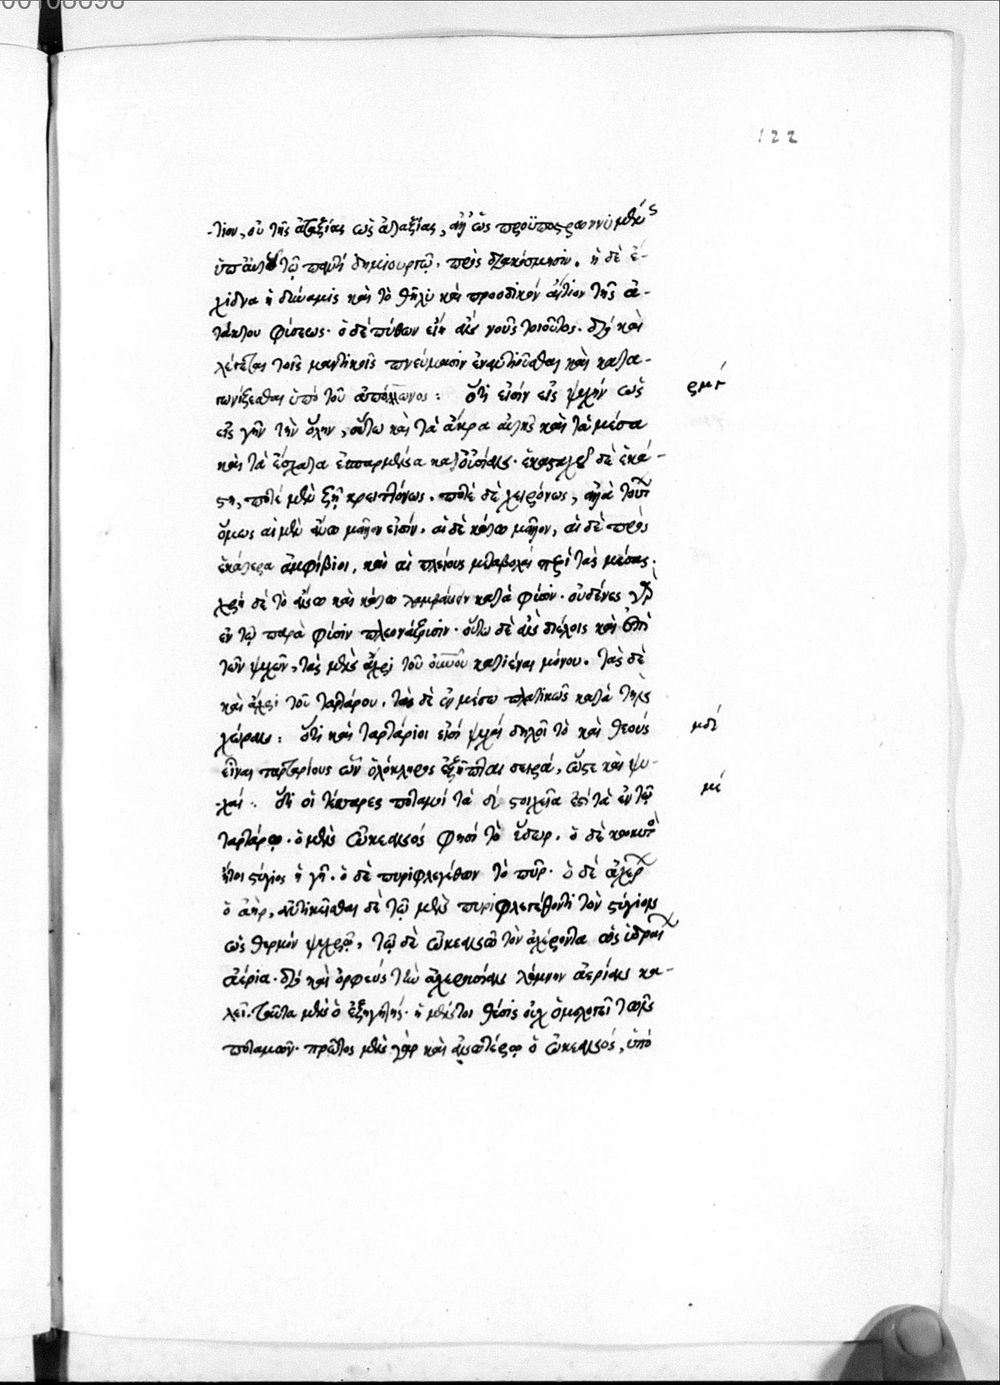 122
-τιον, οὐ τῆς ἀταξίας ὡς ἀταξίας, ἀλλ' ὡς προϋποστρωννύμενης
ὑπ' αὐτοῦ τῷ παντὶ δημιουργῷ, πρὸς διακόσμησιν. ἡ δὲ ἔ-
χιδνα ἡ δύναμις καὶ τὸ θῆλυ καὶ προοδικὸν αἴτιον τῆς ἀ-
τάκτου φύσεως. ὁ δὲ πύθων εἴη ἂν νοῦς τοιοῦτος. διὸ καὶ
λέγεται τοῖς μαντικοῖς πνεύμασιν ἐναντιοῦσθαι καὶ κατα-
γωνίζεσθαι ὑπὸ τοῦ ἀπόλλωνος : ὅτι εἰσὶν εἰς ψυχὴν ὡς
εἰς γῆν τὴν ὅλην, οὕτω καὶ τὰ ἄκρα αὐτῆς καὶ τὰ μέσα
καὶ τὰ ἔσχατα ἑκάστη, ποτὲ μὲν ζῇ κρειττόνως, ποτὲ δὲ χειρόνως, ἀλλὰ
ὅμως αἱ μὲν ἄνω μᾶλλον εἰσίν, αἱ δὲ κάτω μᾶλλον, αἱ δὲ πρὸς
ἑκάτερα ἀμφίβιοι, καὶ αἱ πλείους μεταβολαὶ περὶ τὰς μέσας.
χρὴ δὲ τὸ ἄνω καὶ κάτω λαμβάνειν κατὰ φύσιν. οὐδένες γὰρ
ἐν τῷ παρὰ φύσιν πλεονάζουσιν. οὕτω δὲ ἂν διέλοις καὶ ἐπὶ
τῶν ψυχῶν, τὰς μὲν ἄχρι τοῦ οὐνοῦ κατιέναι μόνου. τὰς δὲ
καὶ ἄχρι τοῦ ταρτάρου, τὰς δὲ ἐν μέσω πλατικῶς κατὰ τὰς
χώρας : ὅτι καὶ ταρτάριοι εἰσὶ ψυχαὶ δηλοῖ τὸ καὶ θεοὺς
εἶναι ταρταρίους ὧν ὁλόκληρος ἐξῆπται σειρά, ὥστε καὶ ψυ-
-χαί : ὅτι οἱ τέτταρες ποταμοὶ τὰ δ' στοιχεῖα ἐστὶ τὰ ἐν τῷ
ταρτάρῳ. ὁ μὲν ὠκεανός φησὶ τὸ ὕδωρ. ὁ δὲ κωκυτὸς
ἤτοι στύγιος ἡ γῆ. ὁ δὲ πυριφλεγέθων τὸ πῦρ. ὁ δὲ ἀχέρων
ὁ ἀήρ, ἀντικεῖσθαι δὲ τῷ μὲν πυριφλεγέθοντι τὸν στύγιον
ὡς θερμὸν ψυχρῷ, τῷ δὲ ὠκεανῷ τὸν ἀχέροντα ὡς
ἀέρια. διὸ καὶ ὀρφεὺς τὴν ἀχερουσίαν λίμνην ἀερίαν κα-
λεῖ. ταῦτα μὲν ὁ ἐξηγητής. ἡ μέντοι θέσις οὐχ ὁμολογεῖ τῶν
ποταμῶν. πρῶτος μὲν γὰρ καὶ ἀνωτέρῳ ὁ ὠκεανός, ὑπὸ
ρμγ
μδ
με